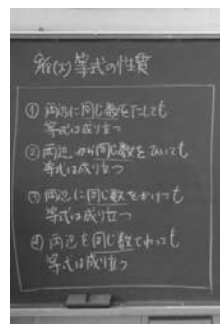 9/8(火) 等式の性質
① 両辺に同じ数をたしても
等式は成り立つ
② 両辺から同じ数をひいても
等式は成り立つ
③ 両辺に同じ数をかけても
等式は成り立つ
④ 両辺を同じ数でわっても
等式は成り立つ